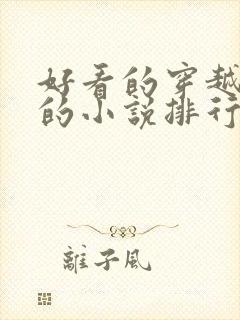 好看的穿越
的小說排行
離子風